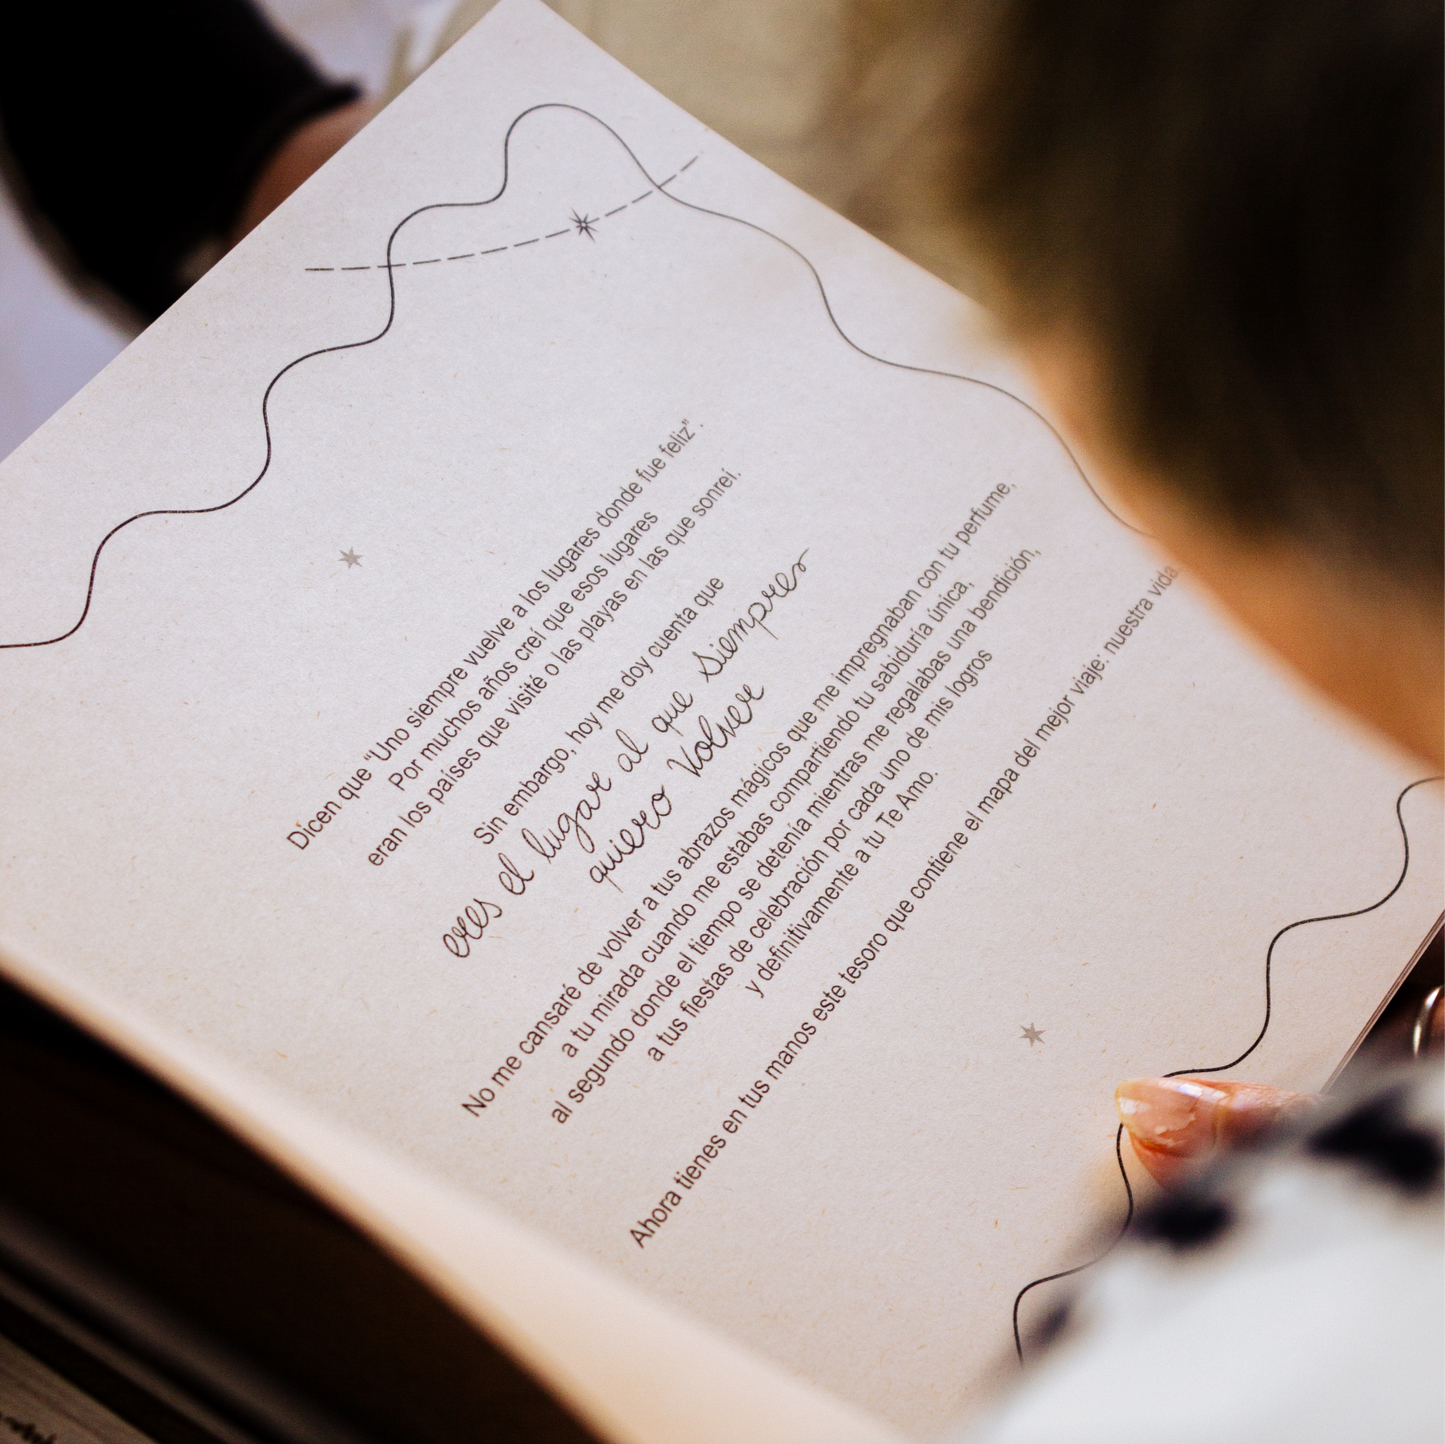 Dicen que “Uno siempre vuelve a los lugares donde fue feliz”.
Por muchos años creí que esos lugares
eran los países que visité o las playas en las que sonreí.
Sin embargo, hoy me doy cuenta que
eres el lugar al que siempres
quiero volver
No me cansaré de volver a tus abrazos mágicos que me impregnaban con tu perfume,
a tu mirada cuando me estabas compartiendo tu sabiduría única,
al segundo donde el tiempo se detenía mientras me regalabas una bendición,
a tus fiestas de celebración por cada uno de mis logros
y definitivamente a tu Te Amo.
Ahora tienes en tus manos este tesoro que contiene el mapa del mejor viaje: nuestra vida.